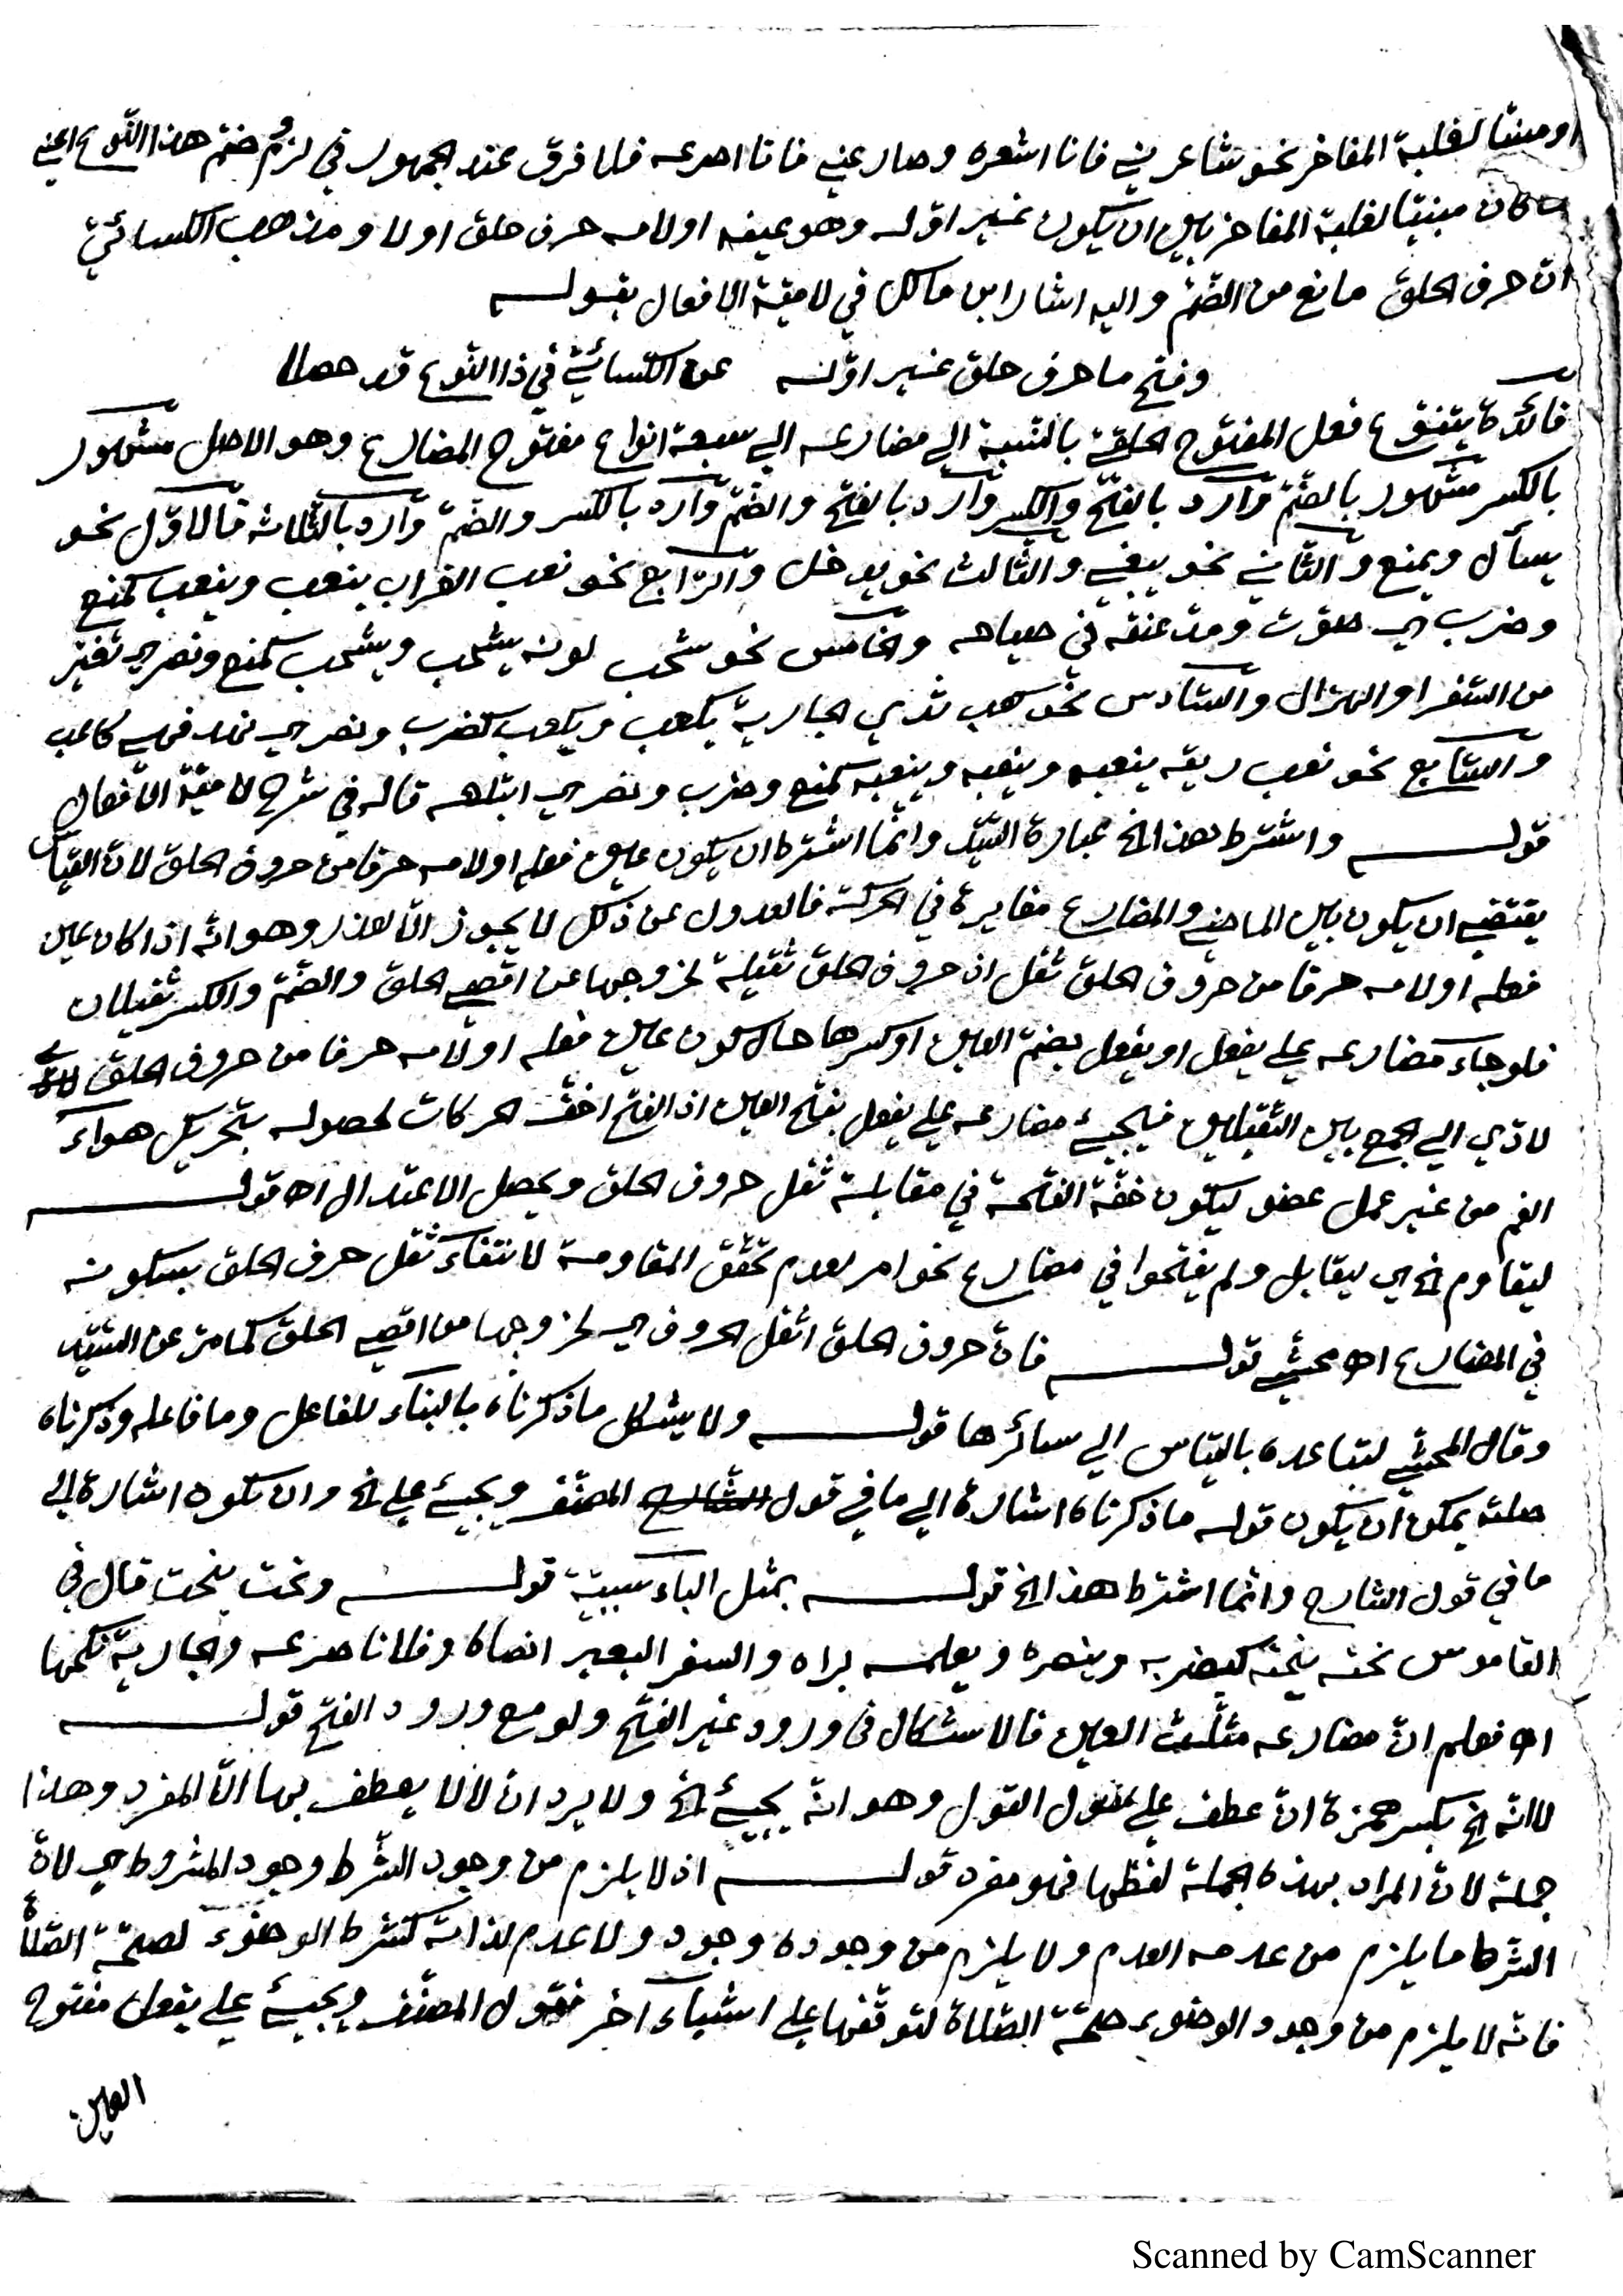 او مبنيا لغلبة المفاخر نحو شاعرني فانا اشعره وصارعني فانا اصرعه فلا فرق عند الجمهور في لزوم ضم هذا النّوع اعني
ما كان مبنيّا لغلبة المفاخر بين ان يكون غير اوّله وهو عينه او لامه حرف حلق او لا ومذهب الكسائيّ
انّ حرف الحلق مانع من الضّمّ واليه اشار ابن مالك في لاميّة الافعال بقوله
وفتح ما حرف حلق غير اوّله عن الكسائيّ في ذا النّوع قد حصلا
فائدة يتنوّع فعل المفتوح الحلقيّ بالنّسبة الي مضارعه الي سبعة انواع مفتوح المضارع وهو الاصل مشهور
بالكسر مشهور بالضّمّ وّارد بالفتح والكسر وّارد بالفتح والضّمّ وّارد بالكسر والضّمّ وّارد بالثّلاثة فالاوّل نحو
يسأل ويمنع والثّاني نحو يبغي والثّالث نحو يدخل والرّابع نحو نعب الغراب ينعب وينعب كمنع
وضرب اي صوّت ومدّ عنقه في صياحه والخّامس نحو شحب لونه يشحب ويشحب كمنع ونصر اي تغيّر
من السّفر او الهزال والسّادس نحو كعب ثدي الجارية يكعب ويكعب كضرب ونصر اي نهد فهي كاعب
والسّابع نحو نعب ريقه ينعبه وينعبه وينعبه كمنع وضرب ونصر اي ابتلعه قاله في شرح لاميّة الافعال
قوله واشترط هذا الخ عبارة السّيّد وانّما اشترط ان يكون عين فعله او لامه حرفا من حروف الحلق لانّ القياس
يقتضي ان يكون بين الماضي والمضارع مغايرة في الحركة فالعدول عن ذلك لا يجوز الّا لعذر وهو انّه اذا كان عين
فعله او لامه حرفا من حروف الحلق ثقل اذ حروف الحلق ثقيلة لخروجها عن اقصي الحلق والضّمّ والكسر ثقيلان
فلو جاء مضارعه علي يفعل او يفعل بضمّ العين او كسرها حال كون عين فعله او لامه حرفا من حروف الحلق
لادّي الي الجمع بين الثّقيلين فيجيئ مضارعه علي يفعل بفتح العين اذ الفتح اخفّ الحركات لحصوله بتحريك هواء
الفم من غير عمل عضو ليكون خفّة الفتحة في مقابلة ثقل حروف الحلق ويحصل الاعتدال اه قوله
ليقاوم الخ اي ليقابل ولم يفتحوا في مضارع نحو امر لعدم تحقّق المقاومة لانتفاء ثقل حرف الحلق بسكونه
في المضارع اه محشّي قوله فانّ حروف الحلق اثقل الحروف اي لخروجها من اقصي الحلق كما مرّ عن السّيّد
وقال المحشّي لتباعده بالقياس الي سائرها قوله ولا يشكل ما ذكرناه بالبناء للفاعل وما فاعله وذكرناه
صلته يمكن ان يكون قوله ما ذكرناه اشارة الي ما في قول الشّارح المصنّف ويجيئ علي الخ وان تكون اشارة الي
ما في قول الشارح وانّما اشترط هذا الخ قوله بمثل الباء سببيّة قوله ونحت ينحت قال في
القاموس نحته ينحته كيضربه وينصره ويعلمه براه والسفر البعير انضاه وفلانا صرعه والجارية نكحها
اه فعلم انّ مضارعه مثلّث العين فالاشكال في ورود غير الفتح ولو مع ورود الفتح قوله
لا انّه الخ بكسر همزة انّ عطف علي مقول القول وهو انّه يجيئ الخ ولا يرد ان لا لا يعطف بها الّا المفرد وهذا
جملة لانّ المراد بهذه الجملة لفظها فهو مفرد قوله اذ لا يلزم من وجود الشّرط وجود المشروط اي لانّ
الشّرط ما يلزم من عدمه العدم ولا يلزم من وجوده وجود ولا عدم لذاته كشرط الوضوء لصحّة الصّلاة
فانّه لا يلزم من وجود الوضوء صحّة الصّلاة لتوقّفها علي اشياء آخر فقول المصنّف ويجيئ علي يفعل مفتوح
العين
Scanned by CamScanner